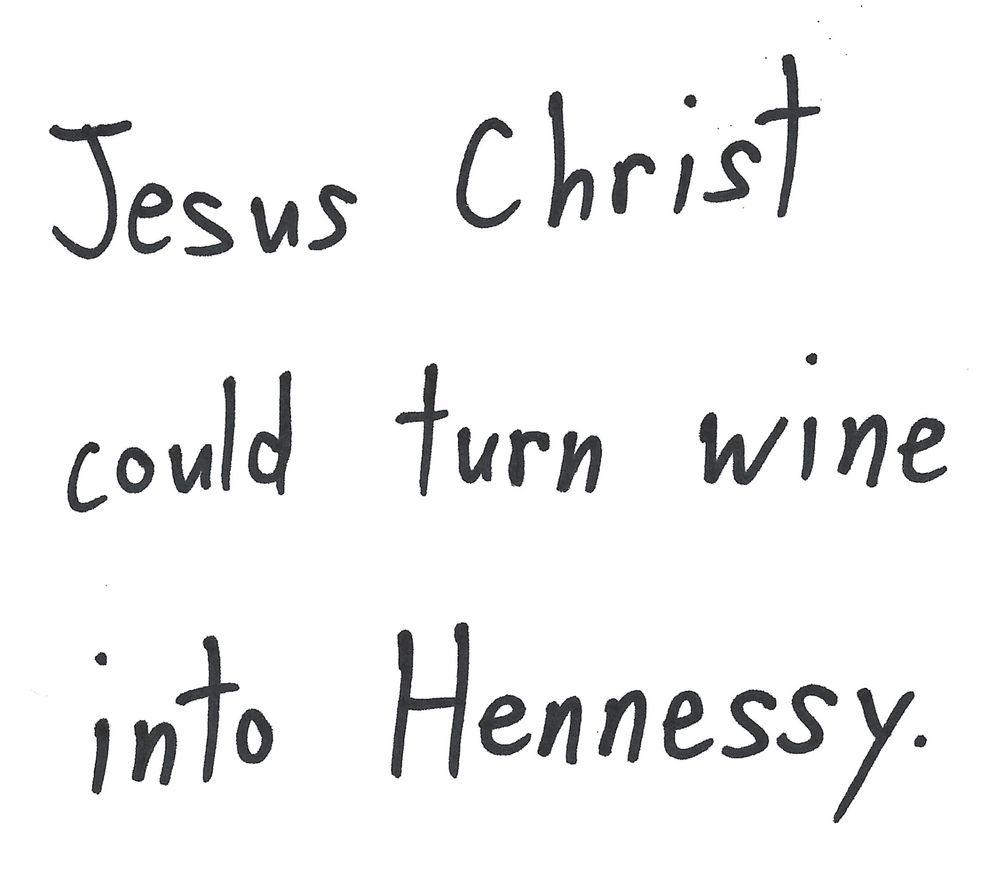 Jesus Christ
could turn wine
into Hennessy.